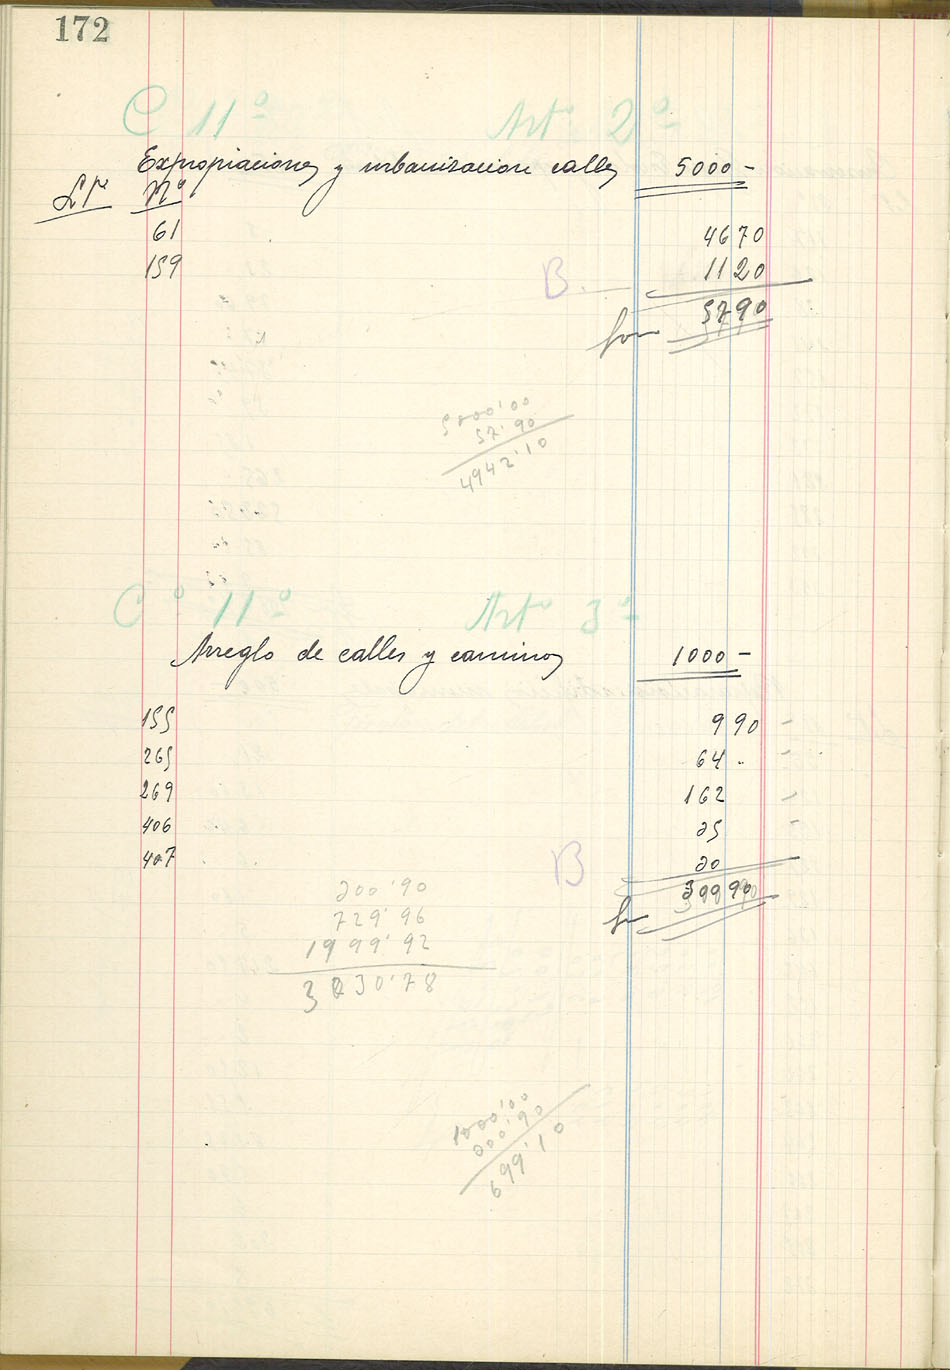 172
C 11º Artº 2º
Expropiaciones y urbanizacion calles 5000 -
Nº
61 46 70
159 11 20
B. 57 90
5000'00
57'90
4942'10
Cº 11º Artº 3º
Arreglo de calles y caminos 1000 -
155 9 90 -
265 64 -
269 162 -
406 25 -
407 20
B
200'90
729'96
1999'92
30'78
1000'00
699'10